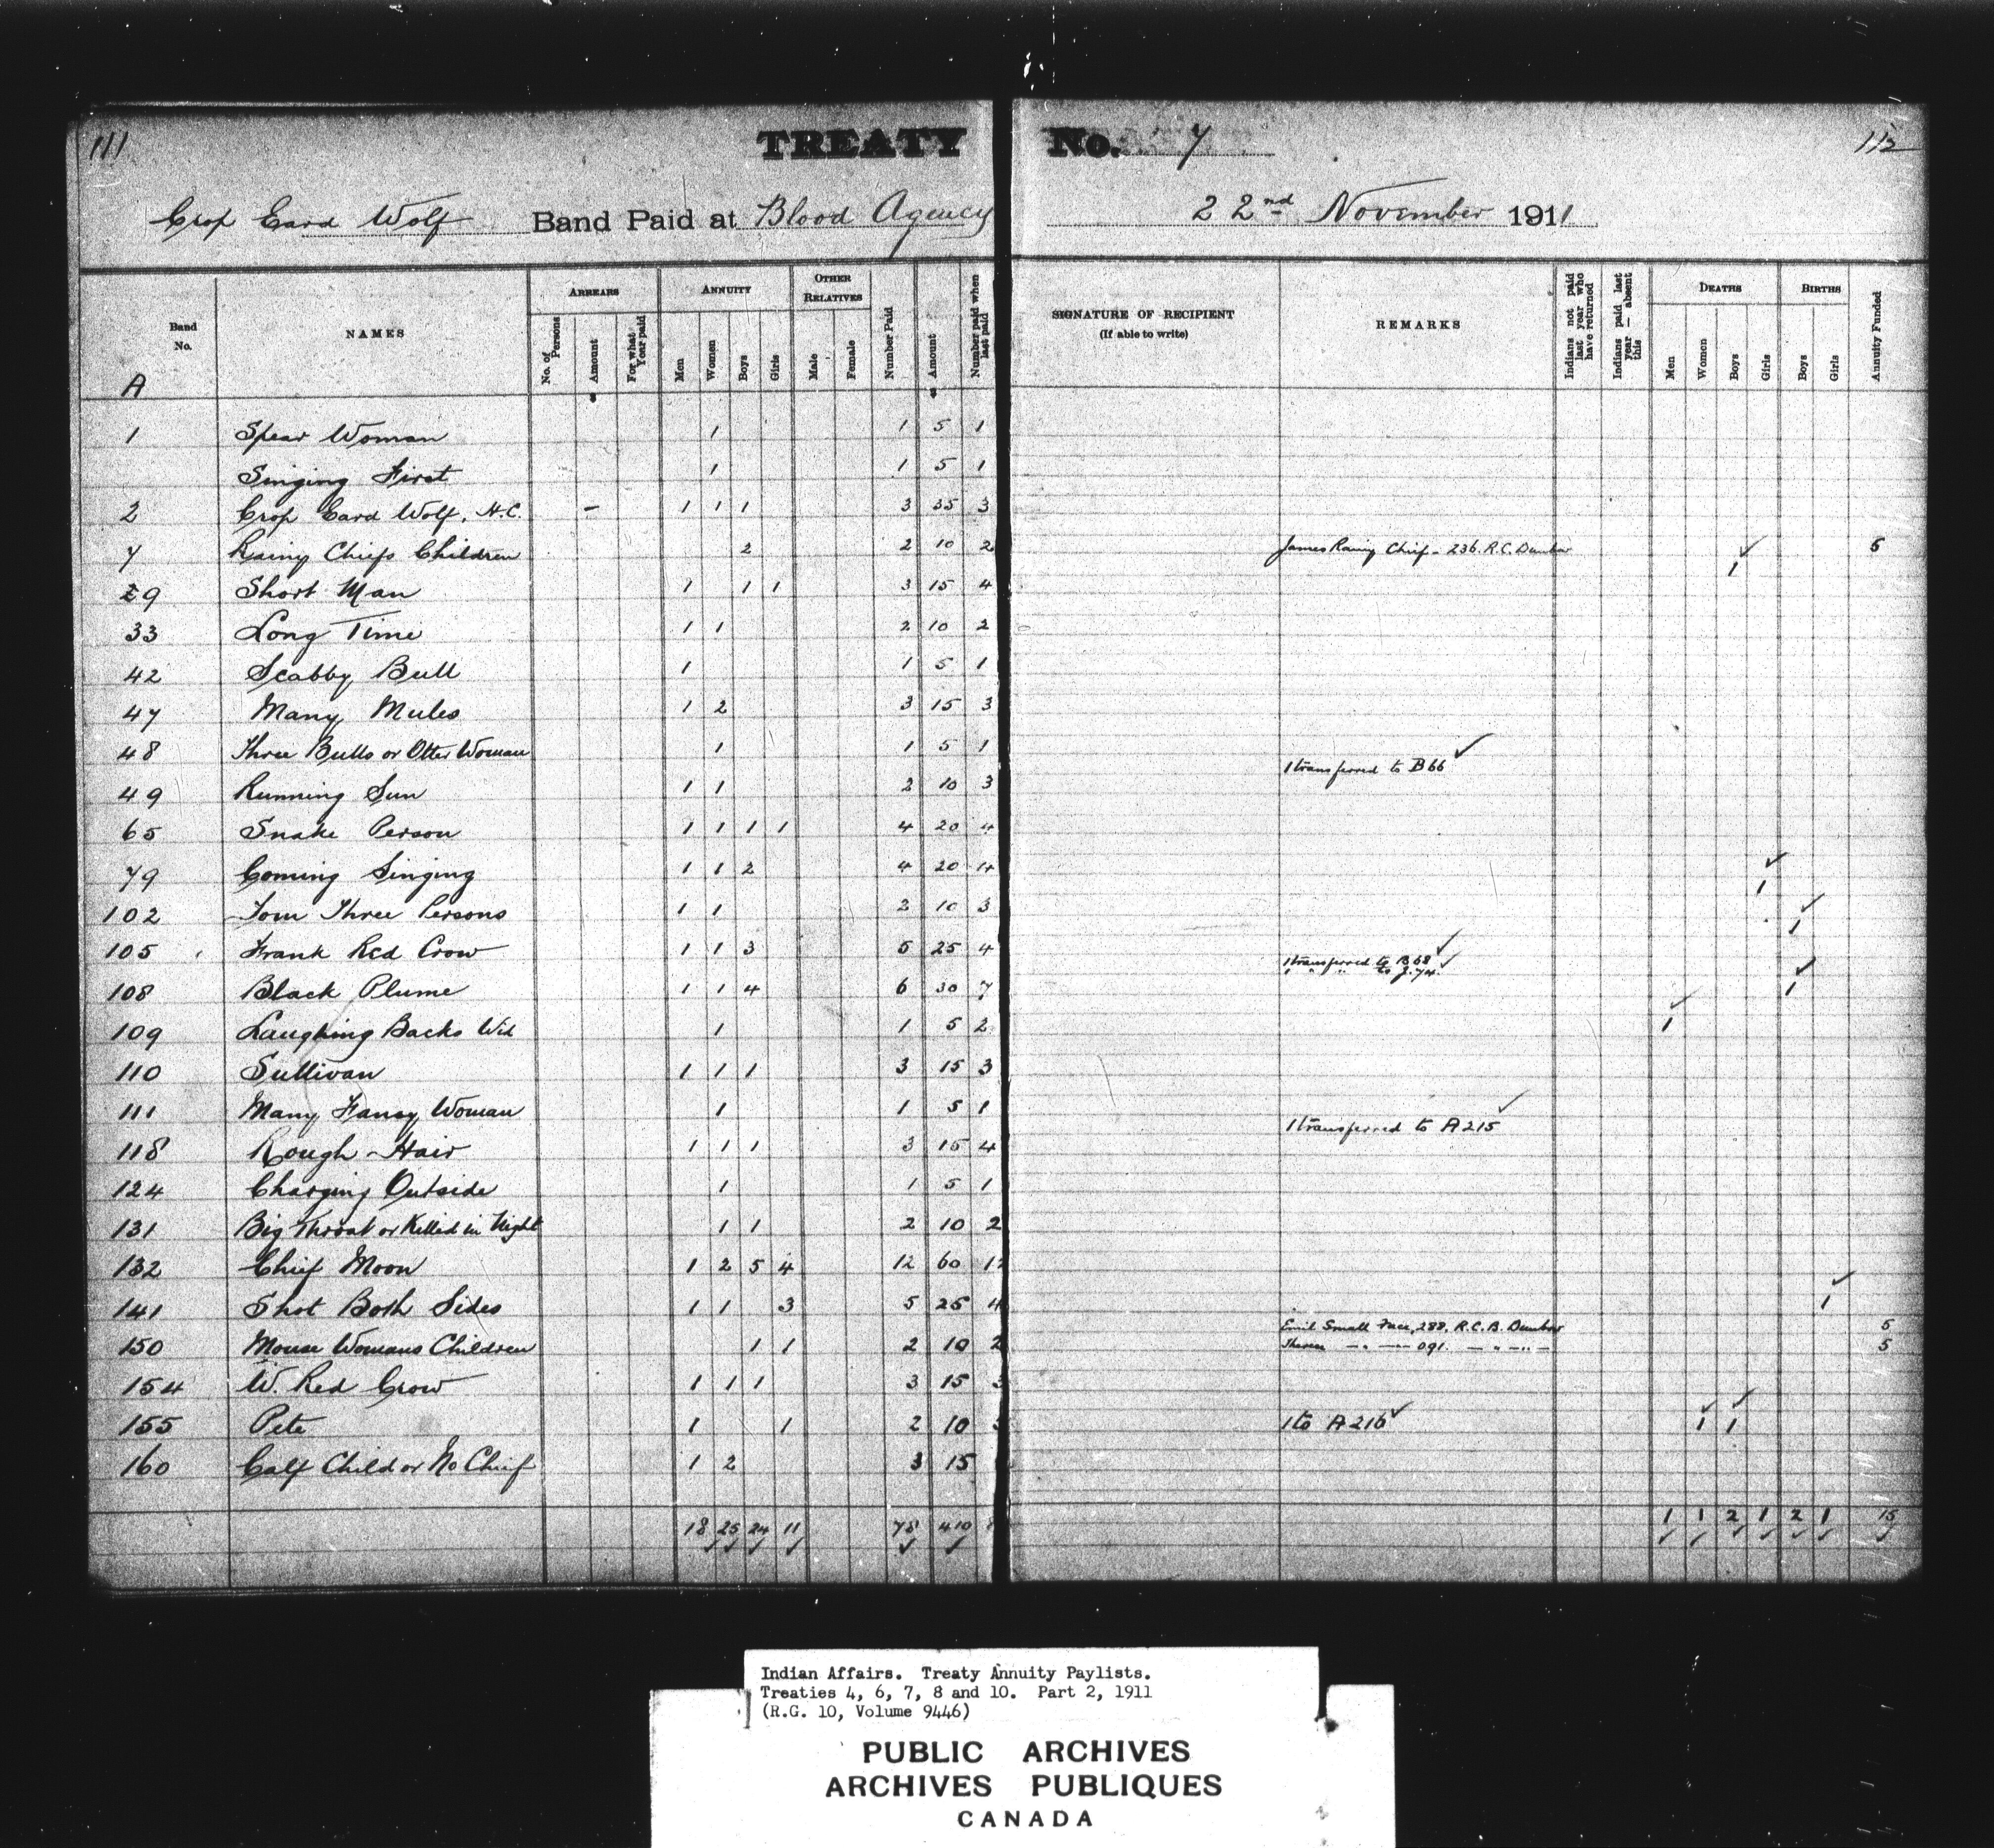 111 TREATY No. 7 112
Crop Eard Wolf Band Paid at Blood Agency 22nd November 1911
Band No. NAMES ARREARS ANNUITY OTHER RELATIVES Number Paid Amount Number paid when last paid SIGNATURE OF RECIPIENT (If able to write) REMARKS Indians not paid last year who have returned Indians paid last year — absent this DEATHS BIRTHS Annuity Funded
No. of Persons Amount For what Year paid Men Women Boys Girls Male Female Men Women Boys Girls Boys Girls
A
1 Spear Woman 1 1 5 1
Singing First 1 1 5 1
2 Crop Eard Wolf. H.C. – 1 1 1 3 35 3
7 Rainy Chiefs Children 2 2 10 2 James Rainy Chief - 236. R.C. Dunbow 5
29 Short Man 1 1 1 3 15 4 ✓ 1
33 Long Time 1 1 2 10 2
42 Scabby Bull 1 1 5 1
47 Many Mules 1 2 3 15 3
48 Three Bulls or Otter Woman 1 1 5 1
49 Running Sun 1 1 2 10 3 1 transferred to B66 ✓
65 Snake Person 1 1 1 1 4 20 4
79 Coming Singing 1 1 2 4 20 4
102 Tom Three Persons 1 1 2 10 3 ✓ 1
105 Frank Red Crow 1 1 3 5 25 4 ✓ 1
108 Black Plume 1 1 4 6 30 7 1 transferred to B68 ✓
1 " " to J.74. ✓ ✓ 1
109 Laughing Backs Wid 1 1 5 2 ✓ 1
110 Sullivan 1 1 1 3 15 3
111 Many Fancy Woman 1 1 5 1
118 Rough Hair 1 1 1 3 15 4 1 transferred to A215 ✓
124 Charging Outside 1 1 5 1
131 Big Throat or Killed in Night 1 1 2 10 2
132 Chief Moon 1 2 5 4 12 60 12
141 Shot Both Sides 1 1 3 5 25 4 ✓ 1
Emil Small Face, 288, R.C.B. Dunbow 5
150 Mouse Womans Children 1 1 2 10 2 Theresa — " — 091. — " — " — 5
154 W. Red Crow 1 1 1 3 15 3
155 Pete 1 1 2 10 1 to A216 ✓ ✓ 1 ✓ 1
160 Calf Child or No Chief 1 2 3 15
18 25 24 11 78 410 1 1 2 1 2 1 15
✓ ✓ ✓ ✓ ✓ ✓ ✓ ✓ ✓ ✓ ✓ ✓ ✓
Indian Affairs. Treaty Annuity Paylists.
Treaties 4, 6, 7, 8 and 10. Part 2, 1911
(R.G. 10, Volume 9446)
PUBLIC ARCHIVES
ARCHIVES PUBLIQUES
CANADA